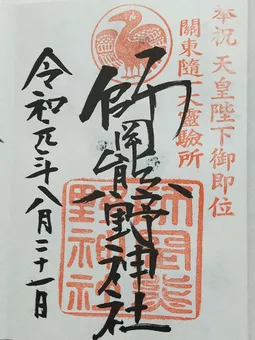 奉祝 天皇陛下御即位
關東隨一大靈驗所
師岡熊野神社
令和元年八月二十一日
師岡熊
野神社